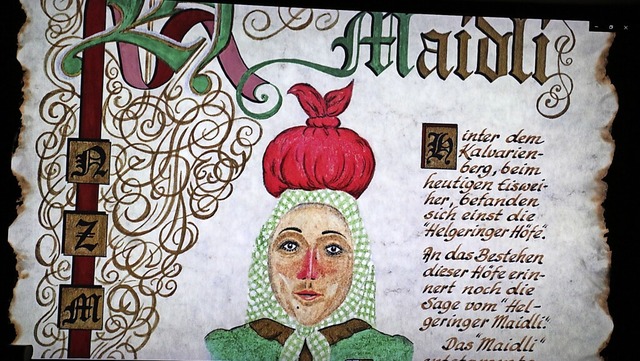 Maidli
N
Z
M
Hinter dem
Kalvarien-
berg, beim
heutigen Eiswei-
her, befanden
sich einst die
"Helgeringer Höfe".
An das Bestehen
dieser Höfe erin-
nert noch die
Sage vom "Hel-
geringer Maidli".
Das "Maidli"